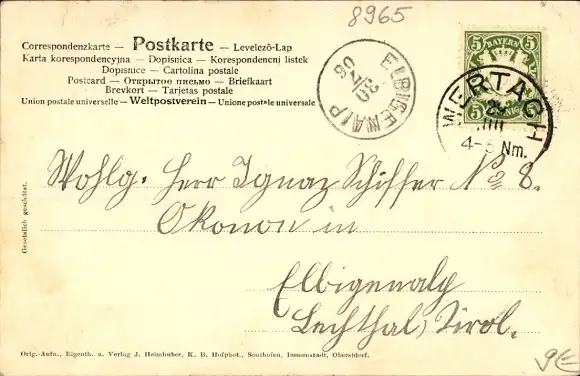 8965
Correspondenzkarte — Postkarte — Levelező-Lap
Karta korespondencyjna — Dopisnica — Korespondenčni listek
Dopisnice — Cartolina postale
Postcard — Открытое письмо — Briefkaart
Brevkort — Tarjetas postale
Union postale universelle — Weltpostverein — Unione postale universale
ELBIGENALP
30
06
BAYERN
5 5
5
WERTACH
29
III
4-5 Nm.
Wohlg. Herr Ignaz Schiffer No 8.
Ökonom in
Elbigenalp
Lechthal, Tirol.
Gesetzlich geschützt.
Orig.-Aufn., Eigenth. u. Verlag J. Heimhuber, K. B. Hofphot., Sonthofen, Immenstadt, Oberstdorf.
9€